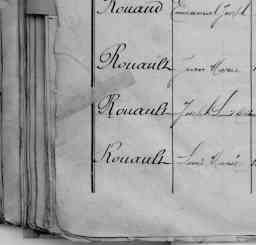 Rouaud Emmanuel Joseph
Rouault Jean Marie
Rouault Joseph Louis
Rouault Louis Marie